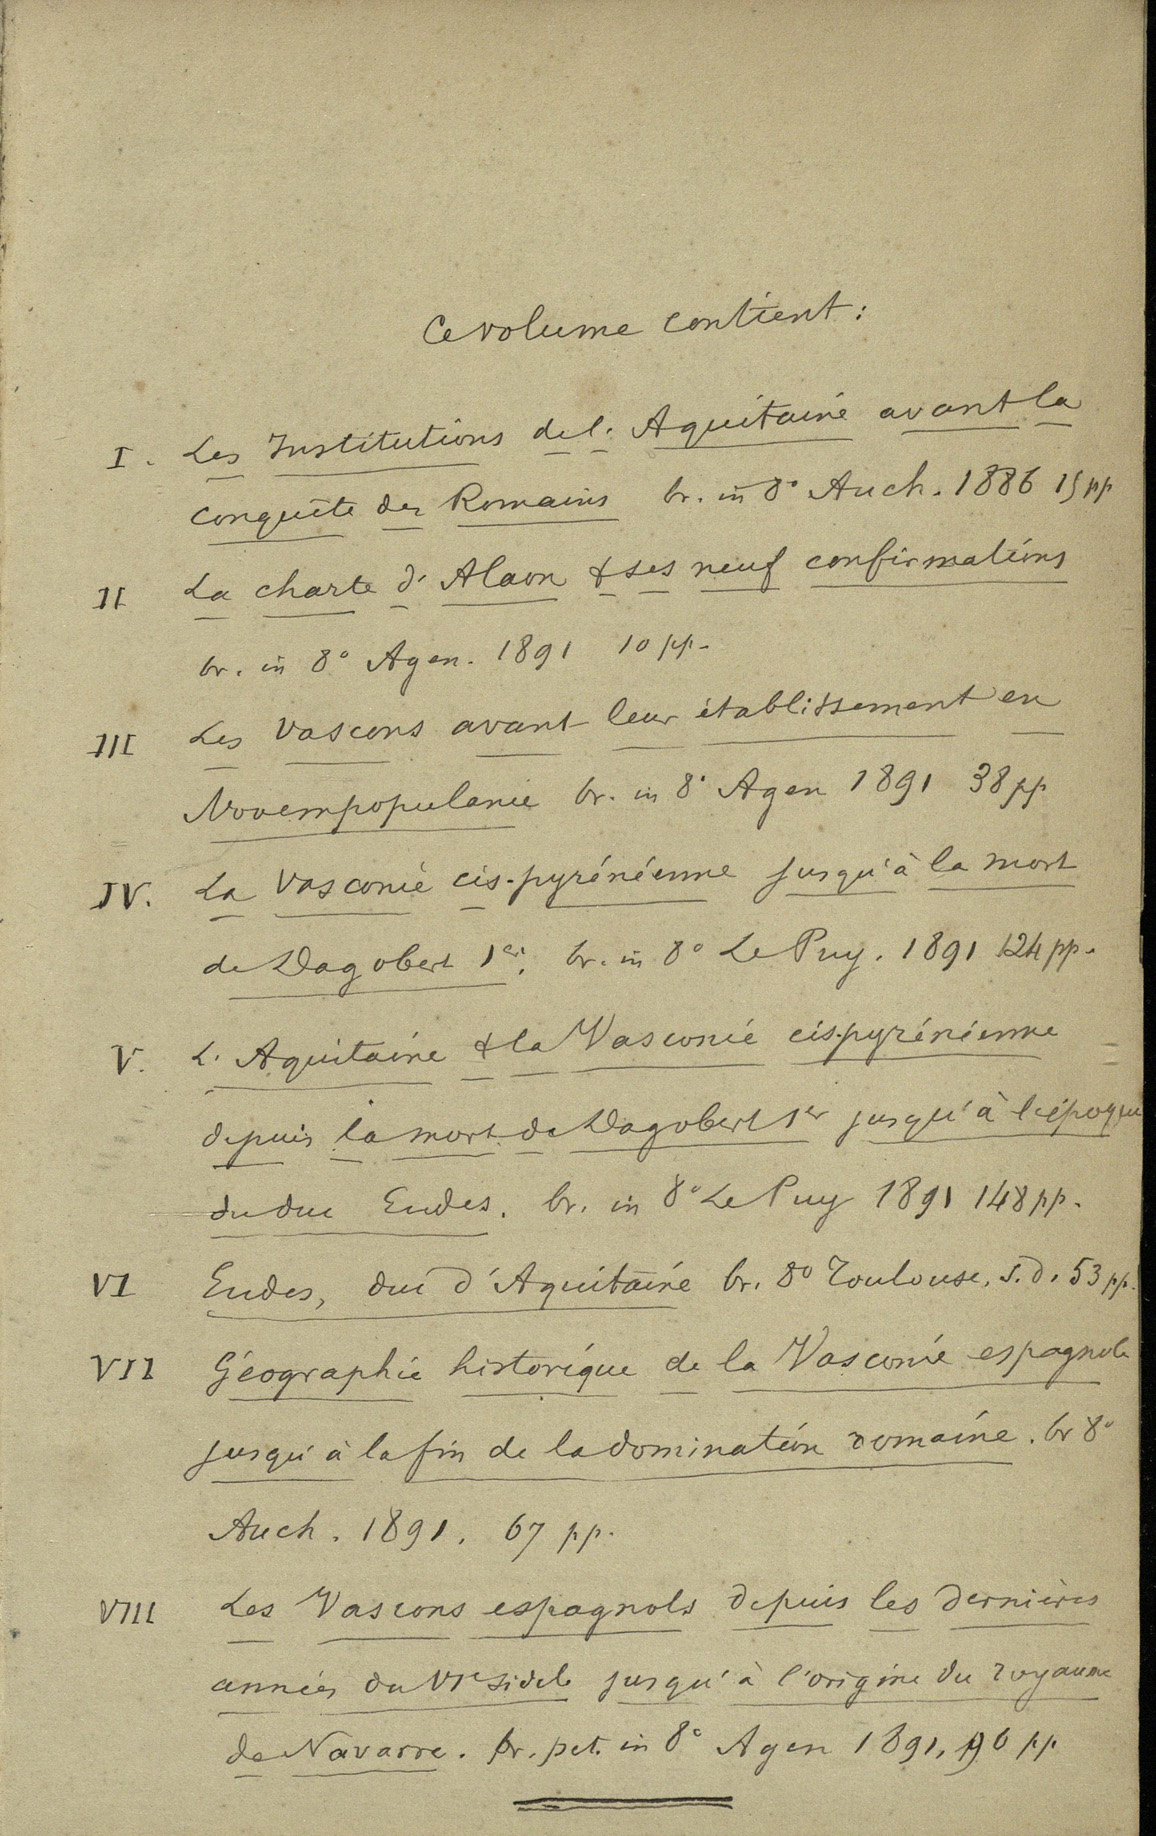 Ce volume contient :
I. Les Institutions de l'Aquitaine avant la
conquête des Romains br. in 8° Auch. 1886 15 pp
II La charte d'Alaon & ses neuf confirmations
br. in 8° Agen. 1891 10 pp.
III Les Vascons avant leur établissement en
Novempopulanie br. in 8° Agen 1891 38 pp
IV. La Vasconie cis-pyrénéenne jusqu'à la mort
de Dagobert 1er. br. in 8° Le Puy. 1891 124 pp.
V. L'Aquitaine & la Vasconie cispyrénéenne
depuis la mort de Dagobert 1er jusqu'à l'époque
du duc Eudes. br. in 8° Le Puy 1891 148 pp.
VI Eudes, duc d'Aquitaine br. 8° Toulouse. s.d. 53 pp.
VII Géographie historique de la Vasconie espagnole
jusqu'à la fin de la domination romaine. br 8°
Auch. 1891. 67 pp.
VIII Les Vascons espagnols depuis les dernières
années du VIe siècle jusqu'à l'origine du royaume
de Navarre. br. pet. in 8° Agen 1891. pp